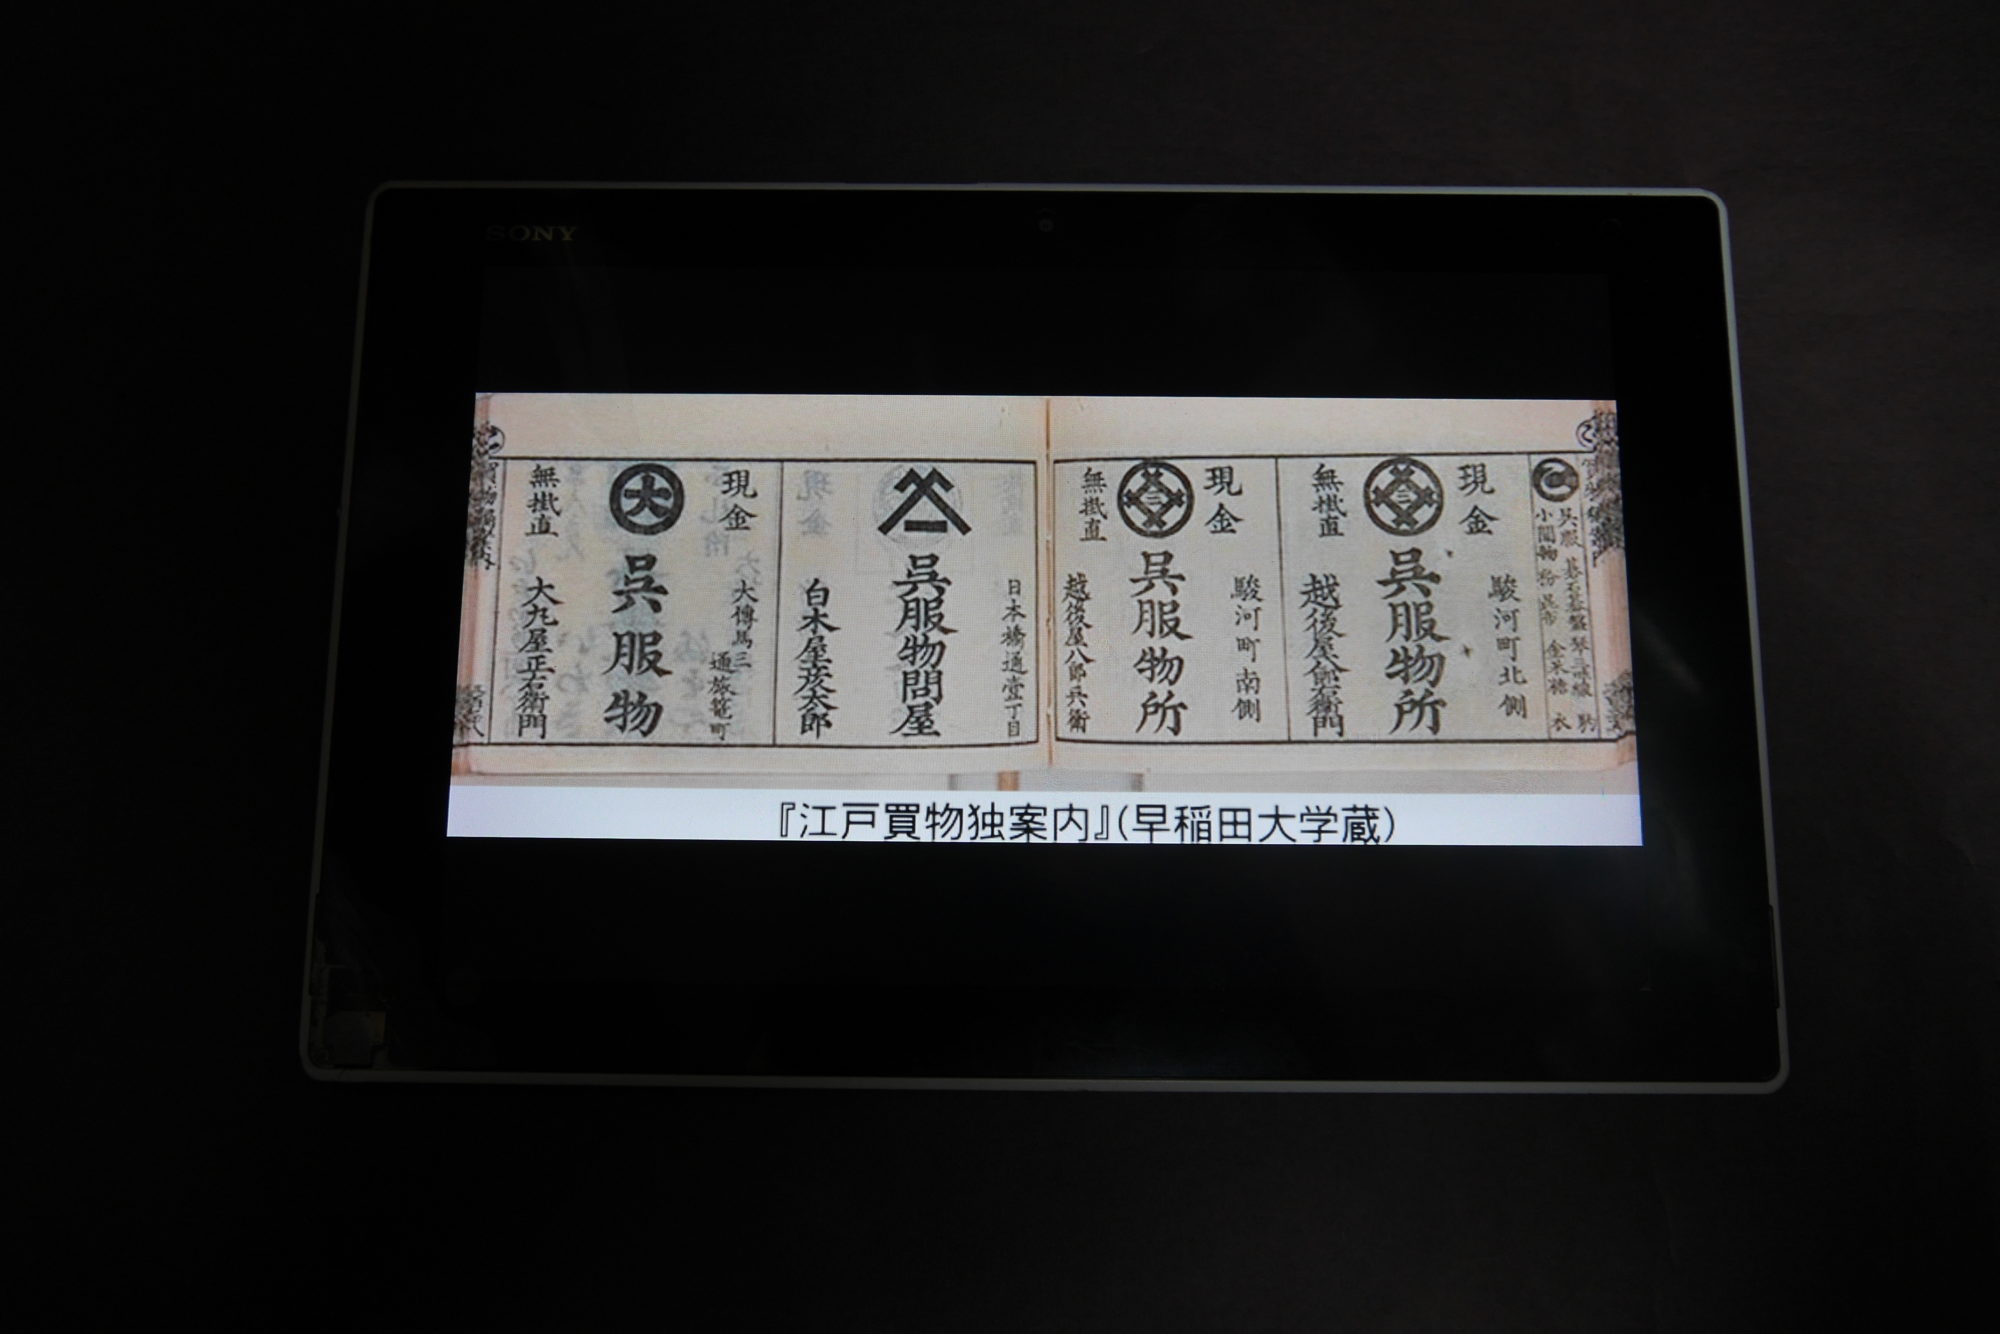 SONY
呉服
小間物
現金
無掛直
駿河町北側
呉服物所
越後屋八郎右衛門
現金
無掛直
駿河町南側
呉服物所
越後屋八郎兵衛
日本橋通壹丁目
呉服物問屋
白木屋彦太郎
現金
大
無掛直
大傳馬三
通旅篭町
呉服物
大丸屋正右衛門
『江戸買物独案内』(早稲田大学蔵)